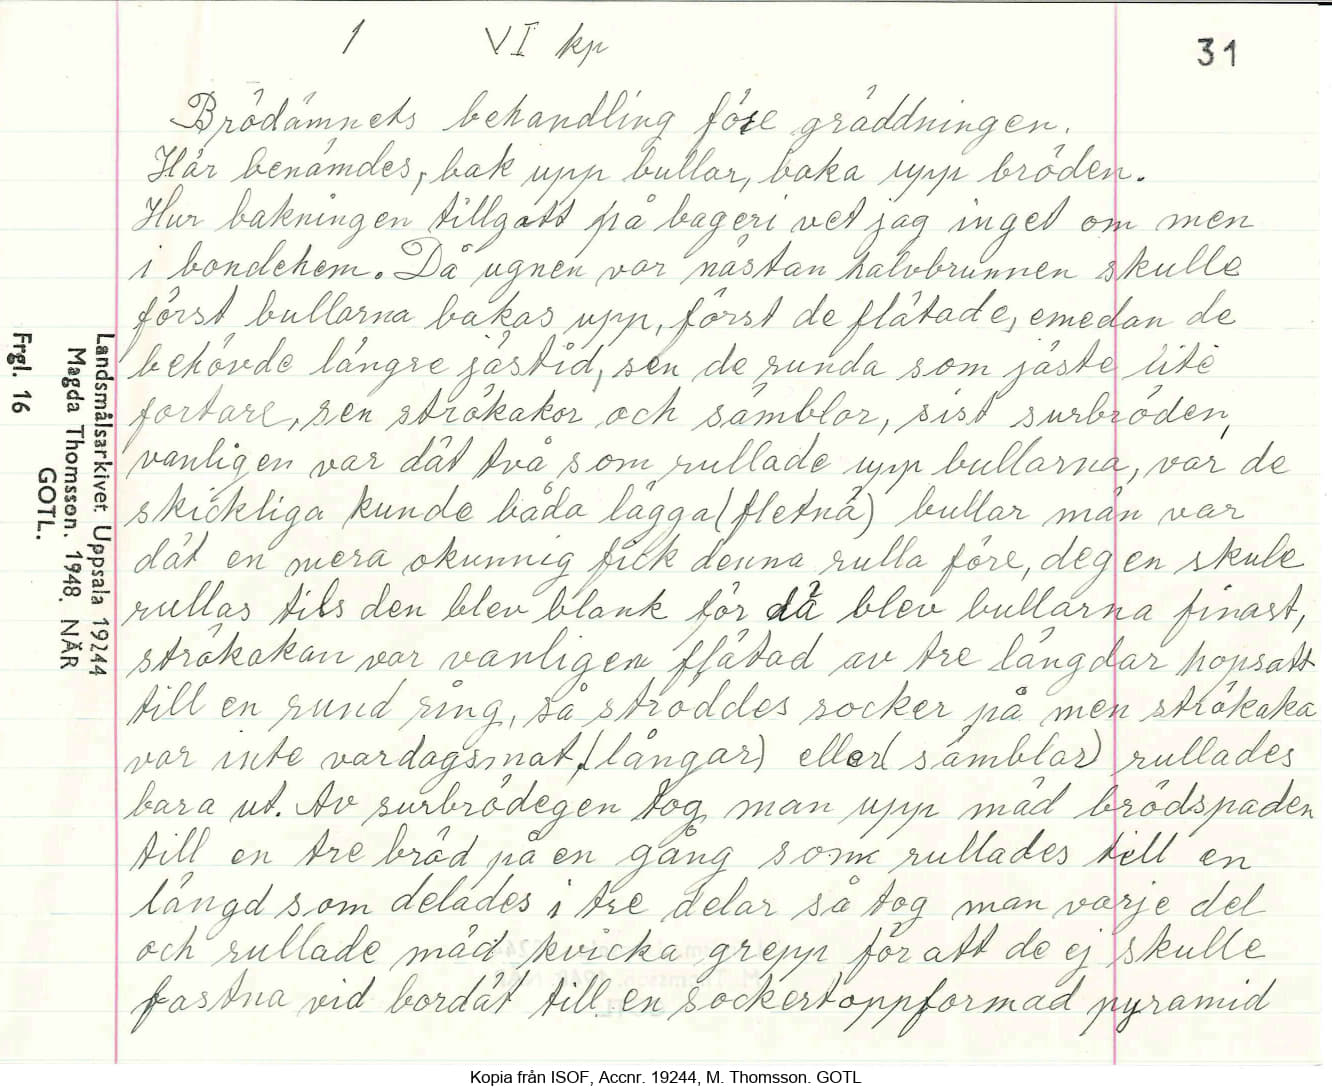 1 VI kp
31
Brödämnets behandling före gräddningen.
Här benämdes, bak upp bullar, baka upp bröden.
Hur bakningen tillgått på bageri vet jag inget om men
i bondehem. Då ugnen var nästan halvbrunnen skulle
först bullarna bakas upp, först de flätade, emedan de
behövde längre jästid, sen de runda som jäste lite
fortare, sen strökakor och sämblor, sist surbröden,
vanligen var dät två som rullade upp bullarna, var de
skickliga kunde båda lägga (fletnä) bullar män var
dät en mera okunnig fick denna rulla före, degen skule
rullas tils den blev blank för då blev bullarna finast,
strökakan var vanligen flätad av tre längdar hopsatt
till en rund ring, så ströddes socker på men strökaka
var inte vardagsmat, (långar) eller (sämblar) rullades
bara ut. Av surbrödegen tog man upp mäd brödspaden
till en tre bröd på en gång som rullades till en
längd som delades i tre delar så tog man varje del
och rullade mäd kvicka grepp för att de ej skulle
fastna vid bordät till en sockertoppformad pyramid
Landsmålsarkivet, Uppsala 19244
Magda Thomsson. 1948. NÄR
GOTL.
Frgl. 16
Kopia från ISOF, Accnr. 19244, M. Thomsson. GOTL